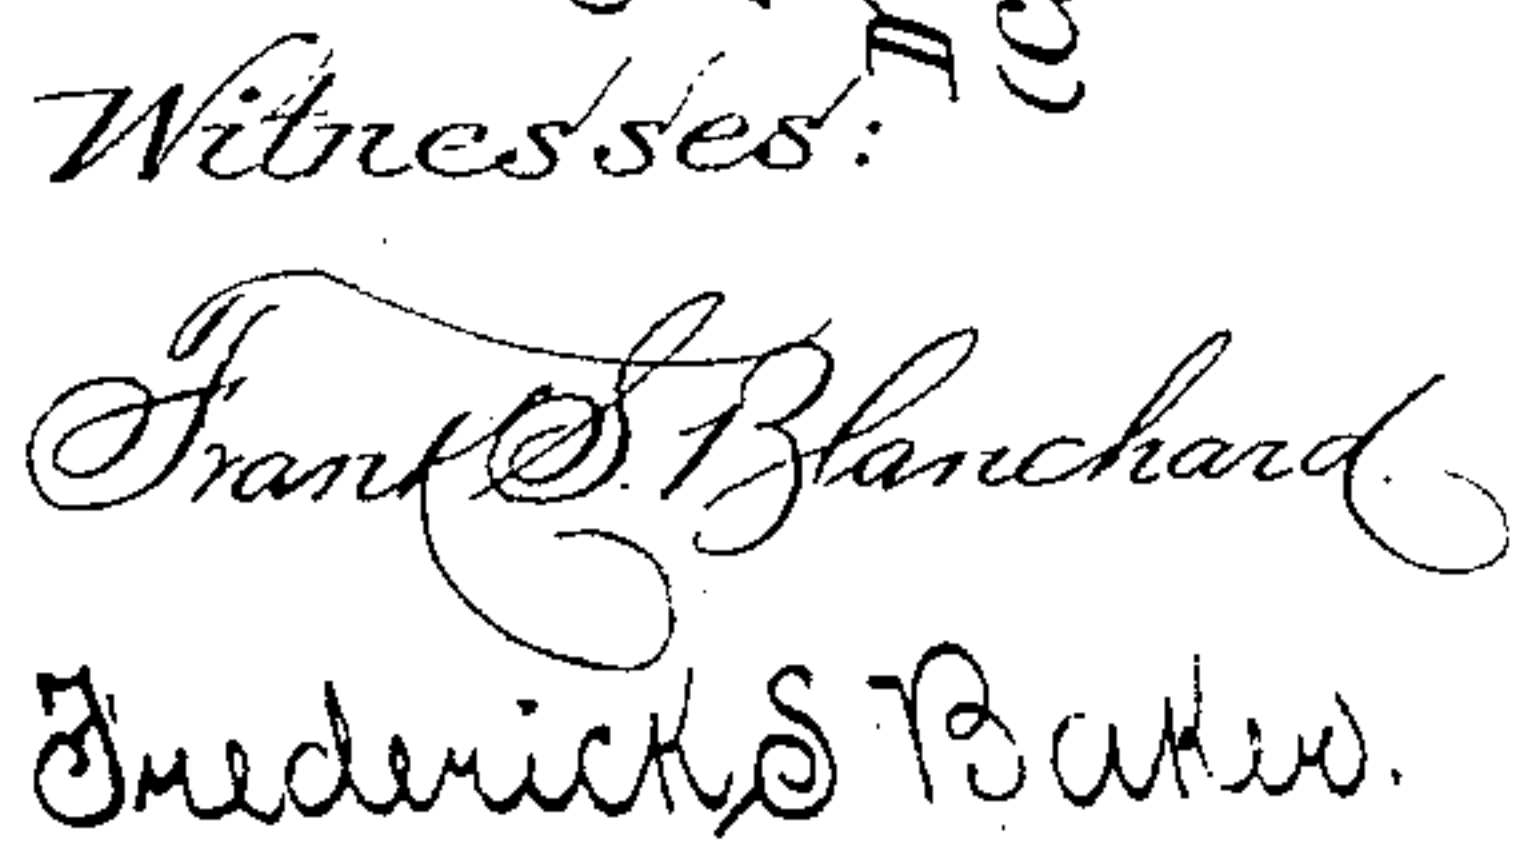 Witnesses:
Frank S. Blanchard.
Frederick S Baker.